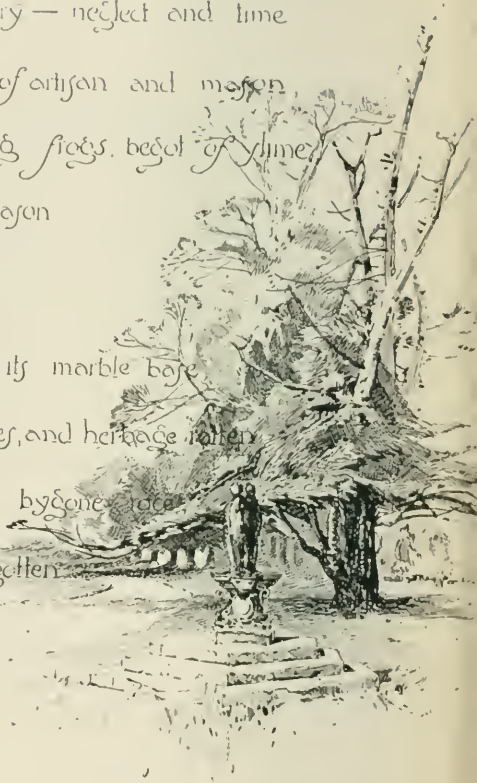 ry — neglect and time
of artisan and mason
g frogs, begot of slime
ason
its marble base
es, and herbage rotten
bygone race
gotten